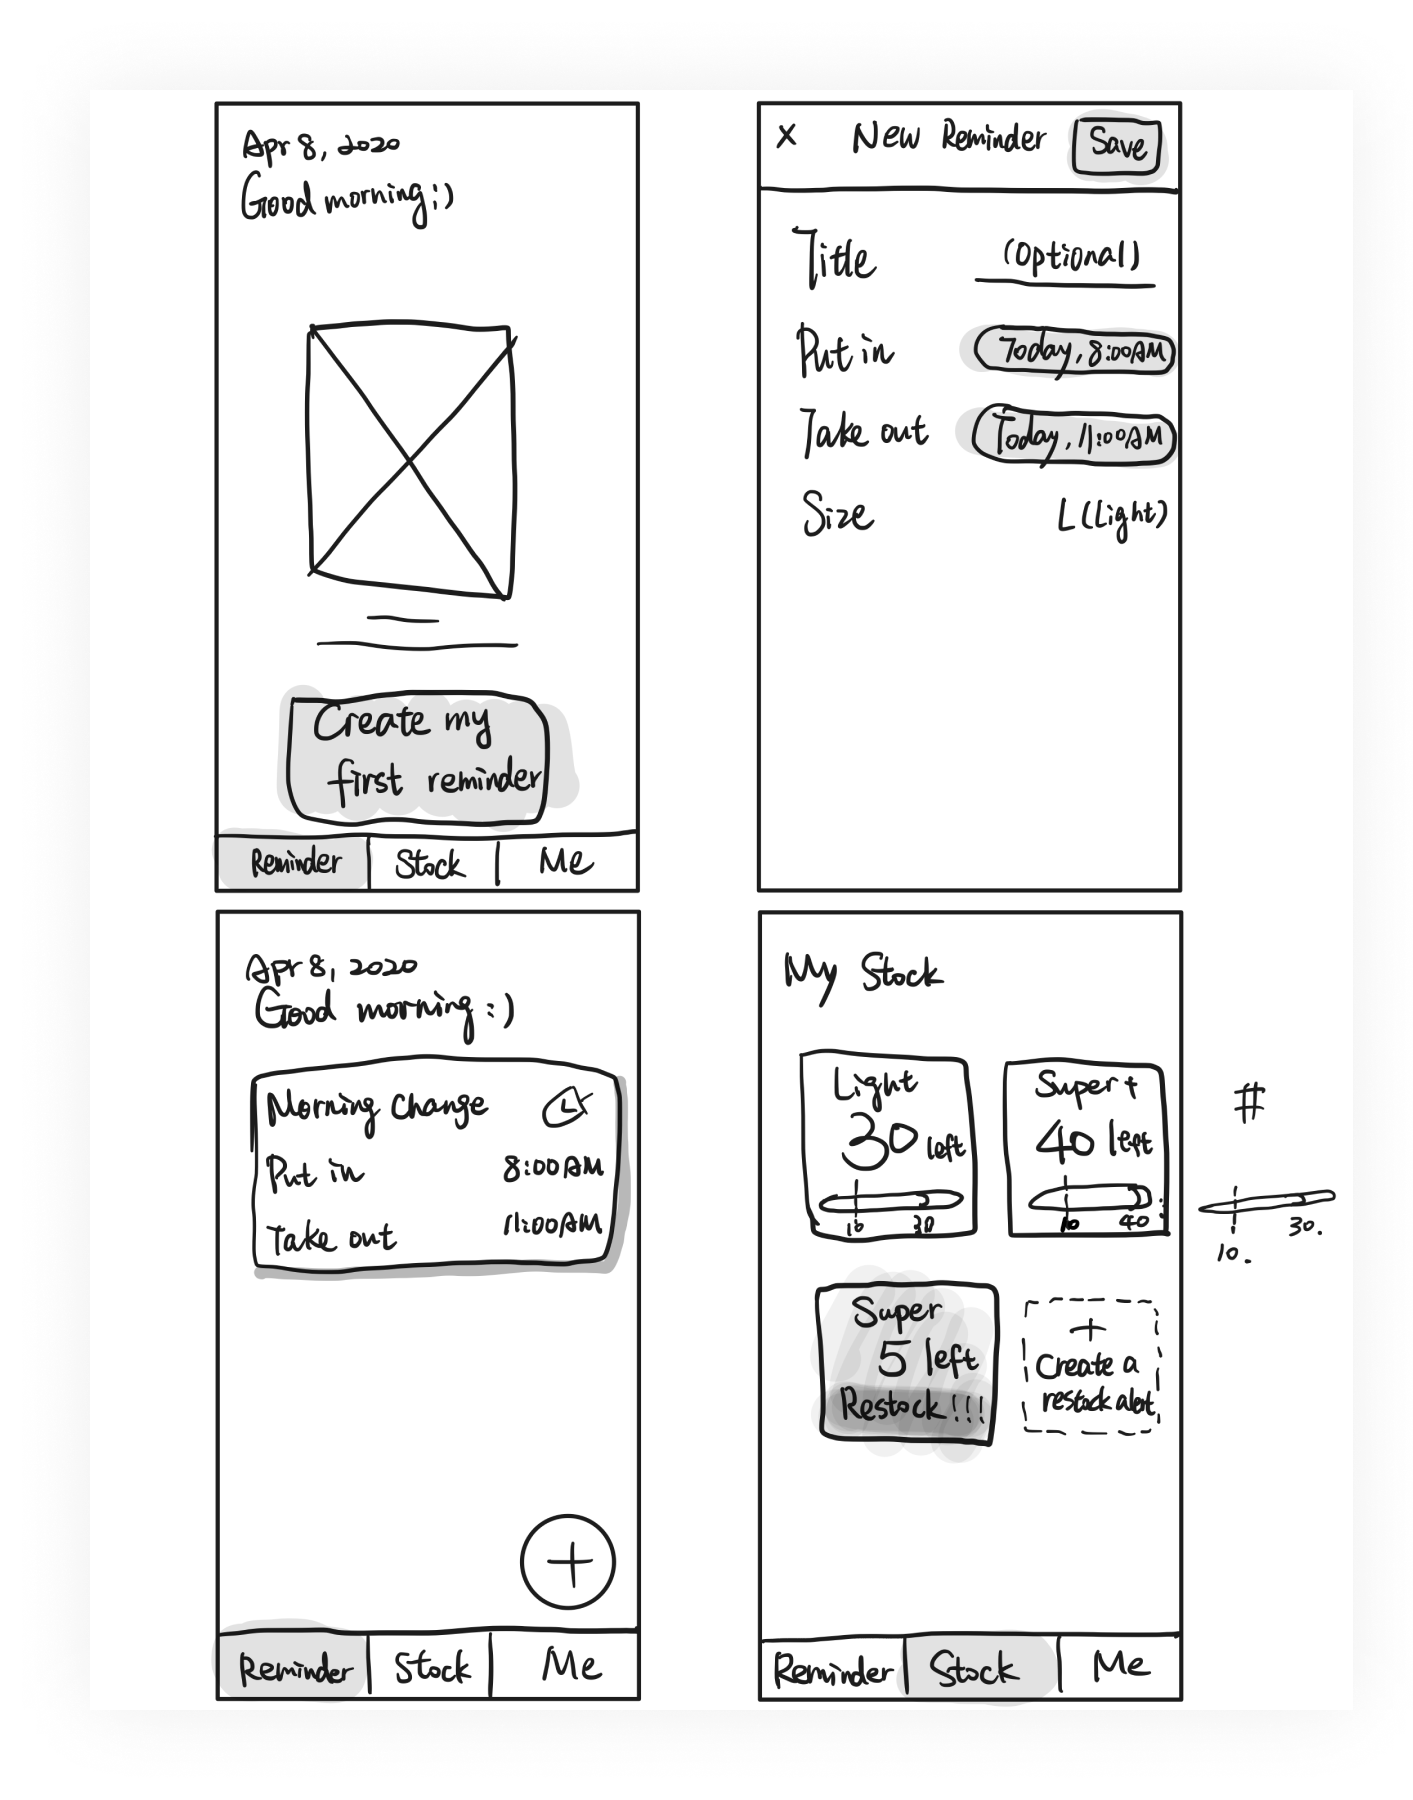 Apr 8, 2020
Good morning :)
Create my
first reminder
Reminder Stock Me
X New Reminder Save
Title (Optional)
Put in Today, 8:00AM
Take out Today, 11:00AM
Size L (Light)
Apr 8, 2020
Good morning :)
Morning Change
Put in 8:00AM
Take out 11:00AM
+
Reminder Stock Me
My Stock
Light
30 left
10 30
Super+
40 left
10 40
#
10. 30.
Super
5 left
Restock!!!
+
Create a
restock alert
Reminder Stock Me